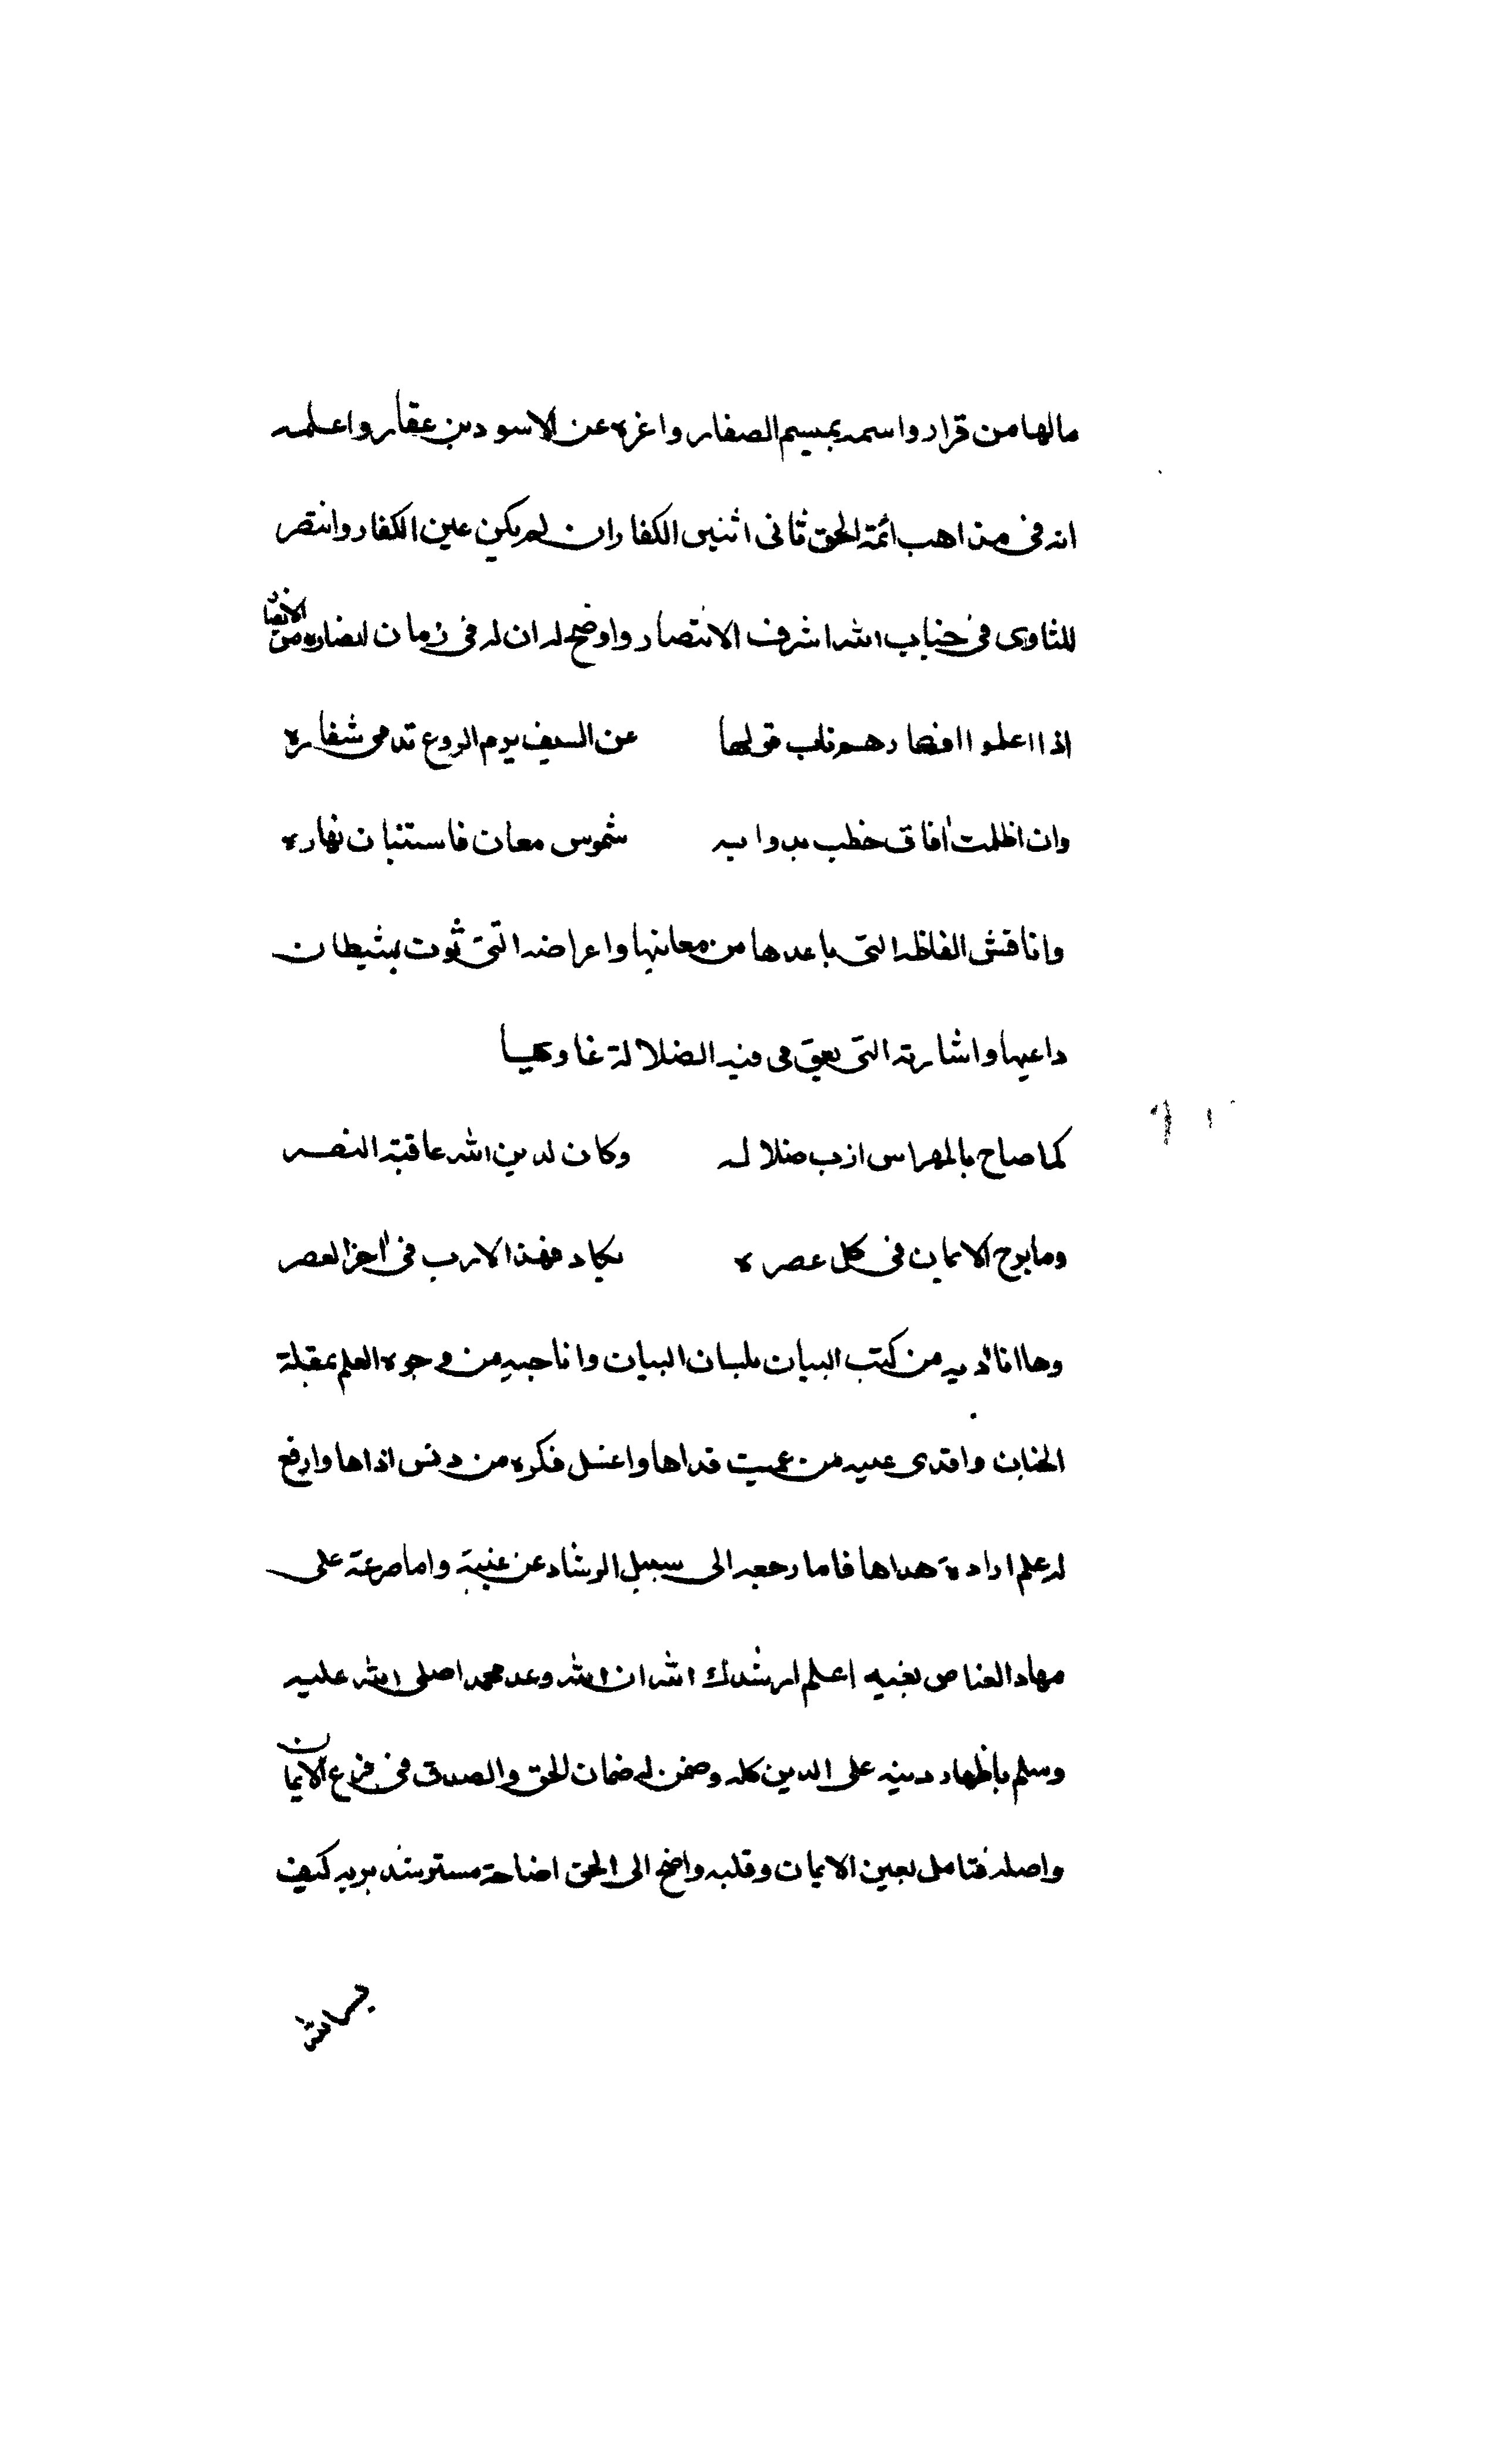 مالها من قرار واسمه بميسم الصغار واغزه عن الاسودين عقار واعلمه
انه فى مذاهب ائمة الحق ثانى اثنين الكفار ان لم يكن عين الكفار وانتصر
للثاوى فى جناب الله اشرف الانتصار واوضح له ان له فى زمان انصاره من الانصار
اذا اعملوا افكارهم ناب قولها عن السيف يوم الروع تدمى شفاره
وان اظلمت افاق خطب بدوا به شموس معان فاستنبان نهاره
واناقش الفاظه التى باعدها من معانيها واعراضه التى ثوت بشيطان
داعيها واشارته التى يعق فى فيه الضلالة غاويها
كما صاح بالمهراس ازب ضلاله وكان لدين الله عاقبة النصر
وما برح الايمان فى كل عصره يكاد فهذا الازب فى اخر العصر
وها انا اديه من كتب البيان بلسان البيان واناجيه من وجوه العلم بمقبلة
واقذى عينه من عميت قذاها واغسل فكره من دنس اذاها وارفع
له علم ارادة هداها فاما رجعه الى سبيل الرشاد عن غيه واما صرعته على
مهاد العناص بغيه اعلم ارشدك الله ان الله وعد محمدا صلى الله عليه
وسلم باظهار دينه على الدين كله وضمن له ضمان الحق والصدق فى فرع الايمان
واصله فتامل بعين الايمان وقلبه واضح الى الحق اضاحة مسترشد بربه كيف